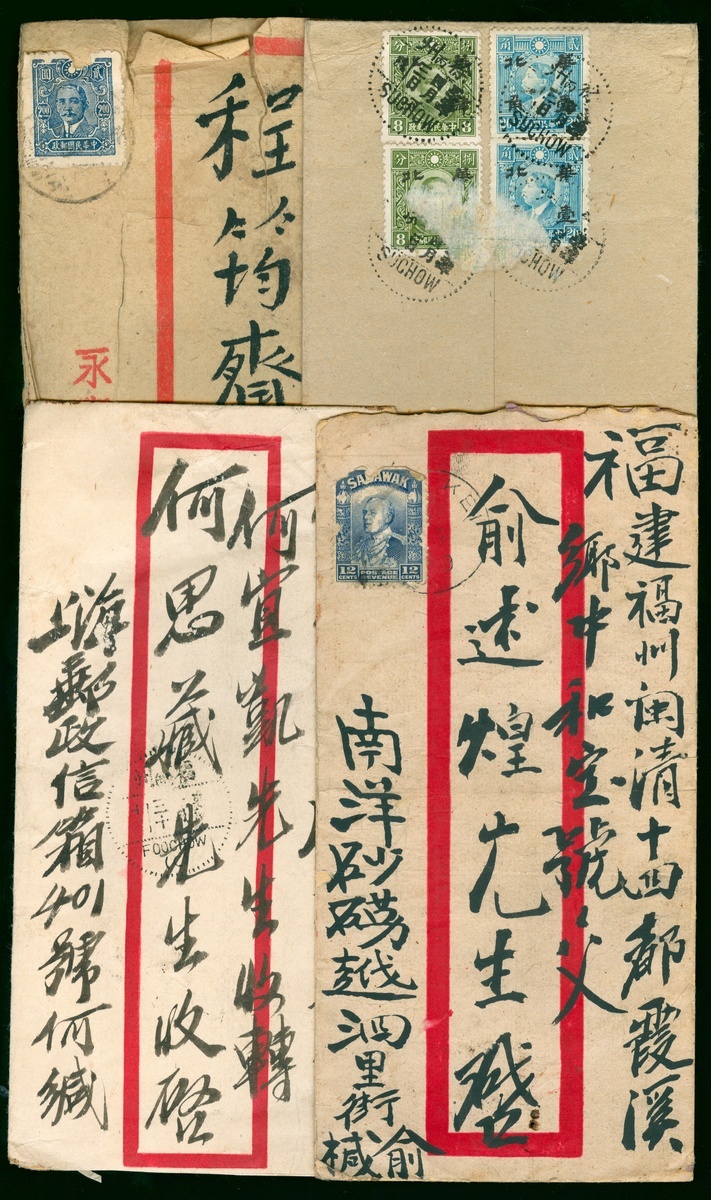 圓
貳
200
200
中華民國郵政
程筠齋
永
捌
分
8
8
中華民國郵政
貳
角
華北
華北
SUCHOW
SUCHOW
8
華北
華北
壹
SUCHOW
SUCHOW
何宜凱先生收轉
何思藏先生收啓
上海郵政信箱401號何緘
FOOCHOW
SARAWAK
12
CENTS
POSTAGE
REVENUE
12
CENTS
福建福州閩清十四都霞溪
鄉中和宝號交
俞述煌先生啓
南洋砂磱越泗里街
俞緘